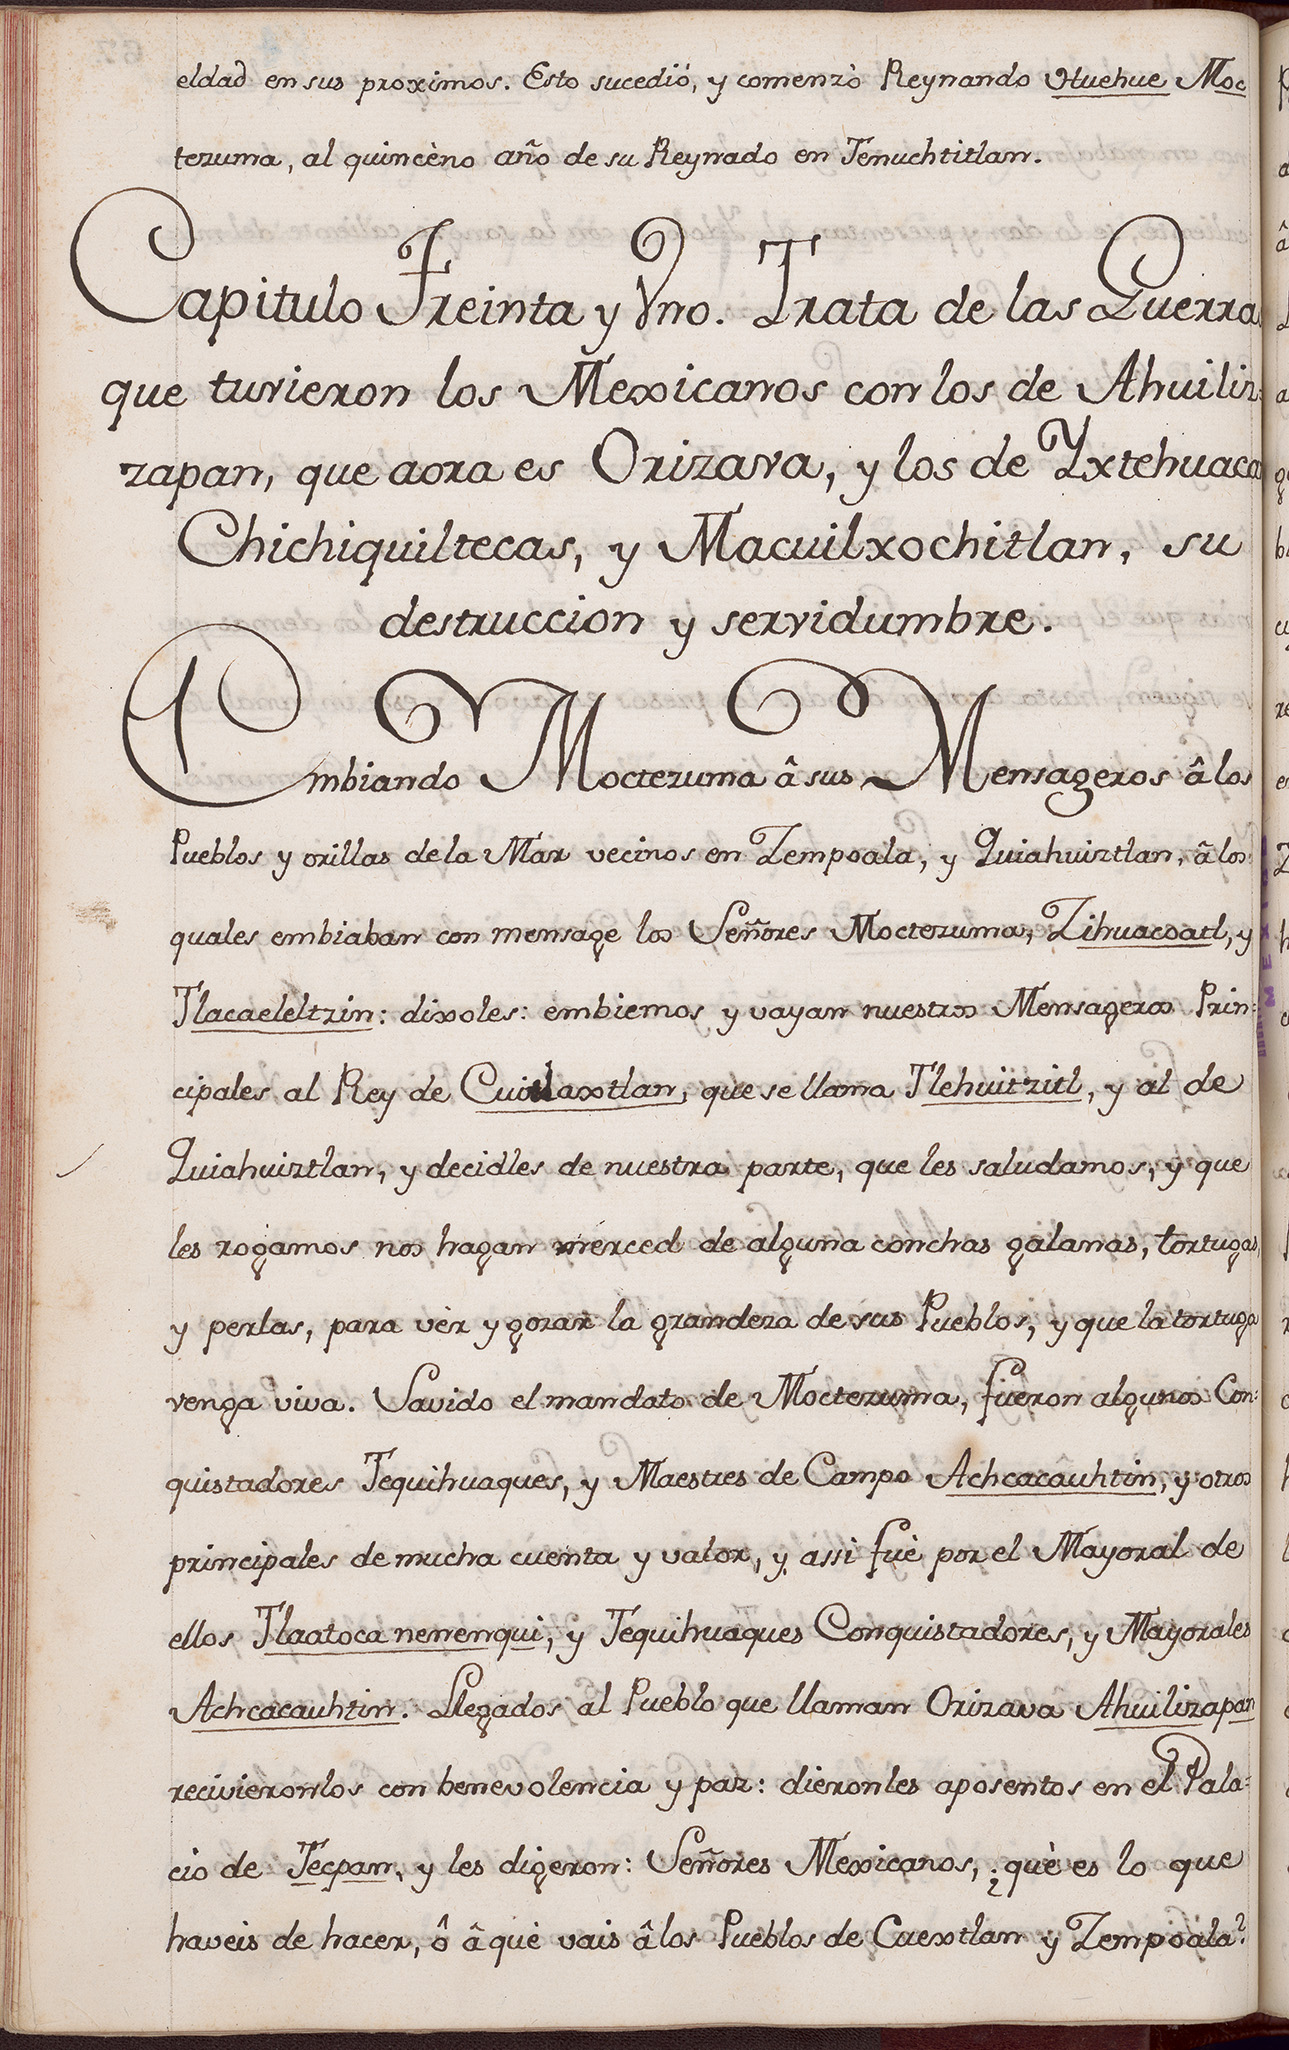 eldad en sus proximos. Esto sucedió, y comenzò Reynando Huehue Moc
tezuma, al quincèno año de su Reynado en Tenuchtitlan.
Capitulo Treinta y Vno. Trata de las Guerras
que tuvieron los Mexicanos con los de Ahuiliz:
zapan, que aora es Orizava, y los de Yxtehuaca
Chichiquiltecas, y Macuilxochitlan, su
destruccion y servidumbre.
Embiando Moctezuma â sus Mensageros â los
Pueblos y orillas de la Mar vecinos en Zempoala, y Quiahuiztlan, â los
quales embiaban con mensage los Señores Moctezuma, Zihuacoatl, y
Tlacaeleltzin: dixoles: embiemos y vayan nuestros Mensageros Prin:
cipales al Rey de Cuitlaxtlan, que se llama Tlehuitzitl, y al de
Quiahuiztlan, y decidles de nuestra parte, que les saludamos, y que
les rogamos nos hagan merced de alguna conchas galanas, tortugas,
y perlas, para vèr y gozar la grandeza de sus Pueblos, y que la tortuga
venga viva. Savido el mandato de Moctezuma, fueron algunos Con:
quistadores Tequihuaques, y Maestres de Campo Achcacauhtin, y otros
principales de mucha cuenta y valor, y assi fuè por el Mayoral de
ellos Tlaatoca nenenqui, y Tequihuaques Conquistadores, y Mayorales
Achcacauhtin. Llegados al Pueblo que llaman Orizava Ahuilizapan
recivieronlos con benevolencia y paz: dieronles aposentos en el Pala:
cio de Tecpan, y les digeron: Señores Mexicanos, ¿què es lo que
haveis de hacer, ô â què vais â los Pueblos de Cuextlan y Zempoala?